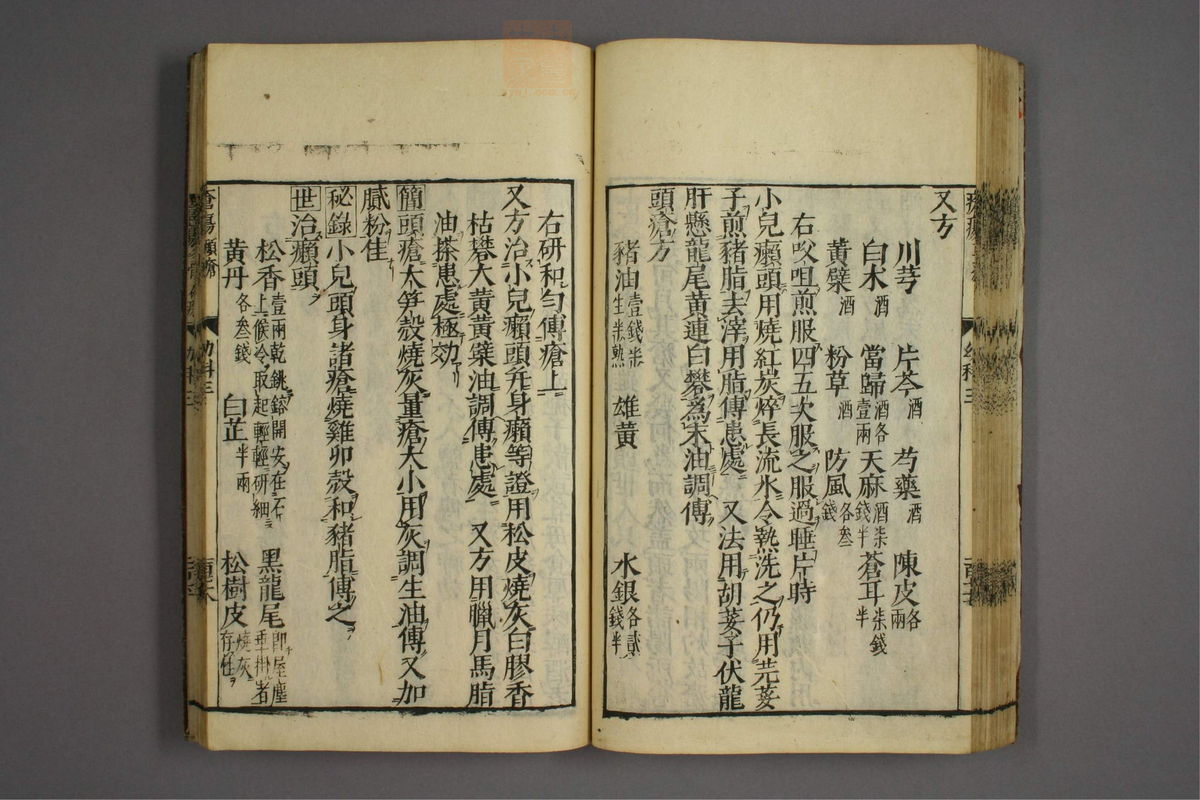 又方
川芎 片芩酒 芍藥酒 陳皮各兩
白朮酒 當歸酒各壹兩 天麻酒柒錢半 蒼耳柒錢半
黃檗酒 粉草酒 防風各叁錢
右㕮咀煎服四五次服之服過睡片時
小兒癩頭用燒紅炭焠長流水令熱洗之仍用芫荽
子煎豬脂去滓用脂傅患處 又法用胡荽子伏龍
肝懸龍尾黃連白礬爲末油調傅
頭瘡方
豬油壹錢半生半熟 雄黃 水銀各貳錢半
右研和勻傅瘡上
又方治小兒癩頭并身癩等證用松皮燒灰白膠香
枯礬大黃黃檗油調傅患處 又方用臘月馬脂
油搽患處極効
簡頭瘡大笋殼燒灰量瘡大小用灰調生油傅又加
膩粉佳
秘錄小兒頭身諸瘡燒雞卵殼和豬脂傅之
世治癩頭
松香壹兩乾銚鎔開安在石上候冷取起輕輕研細 黑龍尾即屋塵垂掛者
黃丹各叁錢 白芷半兩 松樹皮燒灰存性
瘡瘍頭瘡
幼科三